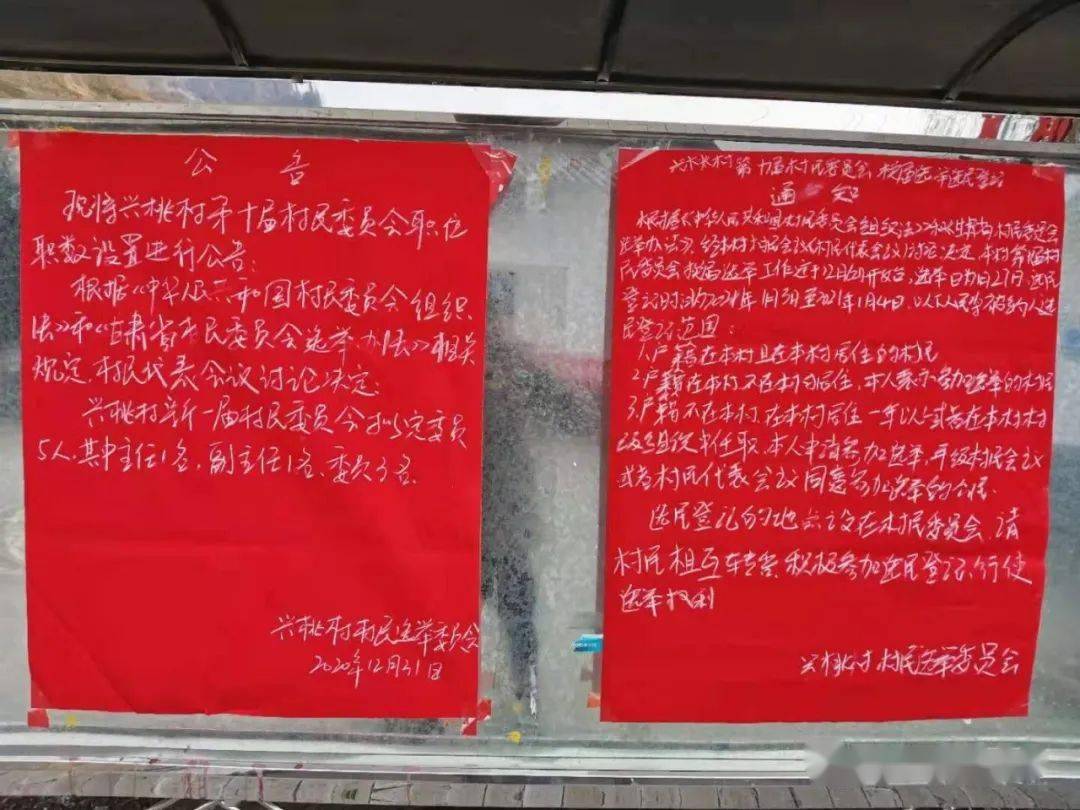 公告
现将兴桃村第十届村民委员会职位
职数设置进行公告:
根据《中华人民共和国村民委员会组织
法》和《甘肃省村民委员会选举办法》相关
规定,村民代表会议讨论决定:
兴桃村新一届村民委员会拟定委员
5人,其中主任1名,副主任1名,委员3名.
兴桃村村民选举委员会
2020年12月31日
第十届村民委员会换届选举选民登记
通知
根据《中华人民共和国村民委员会组织法》和《甘肃省村民委员会
选举办法》,经本村村民会议(村民代表会议)讨论决定,本村第十届村
民委员会换届选举工作
登记时间为
民登记范围:
1.户籍在本村且在本村居住的村民
2.户籍在本村,不在本村居住,本人表示参加选举的村民
3.户籍不在本村,在本村居住一年以上或者在本村村
级组织中任职,本人申请参加选举,并经村民会议
或者村民代表会议同意参加选举的公民.
选民登记的地点设在村民委员会,请
村民相互转告,积极参加选民登记,行使
选举权利
兴桃村村民选举委员会